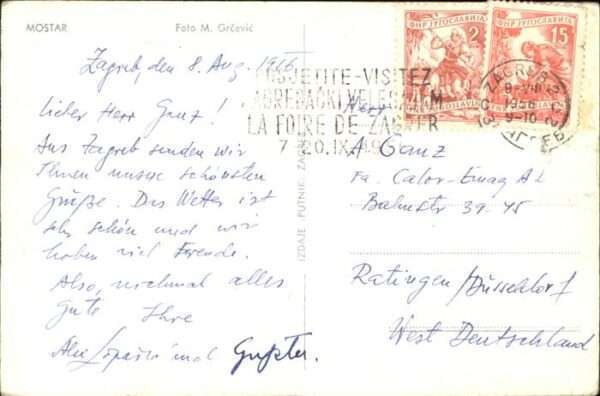 MOSTAR
Foto M. Grčević
Zagreb, den 8. Aug. 1956
Lieber Herr Ganz!
Aus Zagreb senden wir
Ihnen unsere schönsten
Grüße. Das Wetter ist
sehr schön und wir
haben viel Freude.
Also, nochmal alles
Gute Ihre
und
IZDAJE PUTNIK, ZAGREB
POSJETITE-VISITEZ
ZAGREBAČKI VELESAJAM
LA FOIRE DE ZAGREB
7 20.IX.
ФНР ЈУГОСЛАВИЈА
2
FNR JUGOSLAVIJA
ФНР ЈУГОСЛАВИЈА
15
ZAGREB 2
8-VIII
1956
9-10
ЗАГРЕБ
A. Ganz
Fa. Calor-Emag AG
Bahnstr 39-45
Ratingen/Düsseldorf
West Deutschland